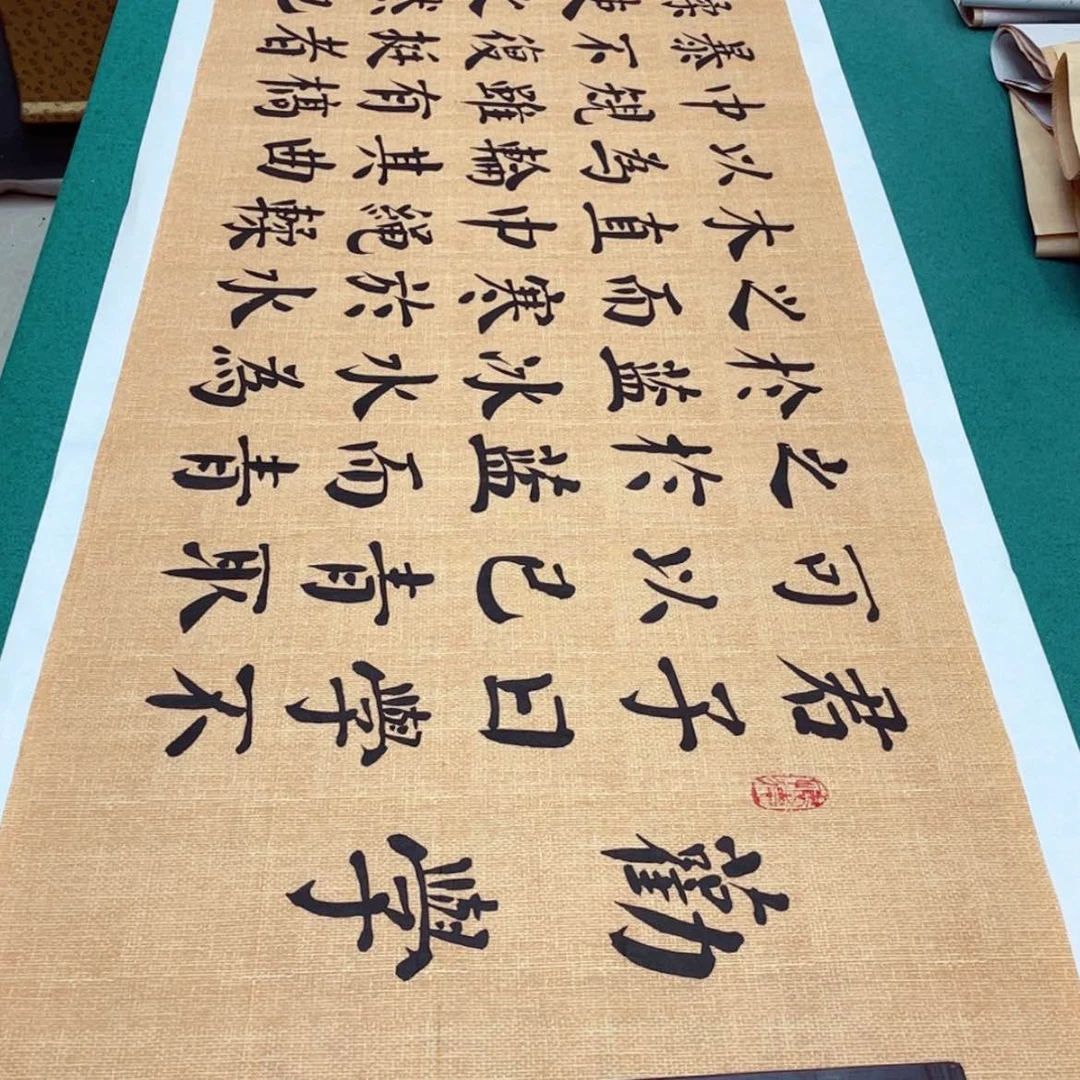 勸學
君子曰學不
可以已青取
之於藍而青
於藍冰水為
之而寒於水
木直中繩輮
以為輪其曲
中規雖有槁
暴不復挺者